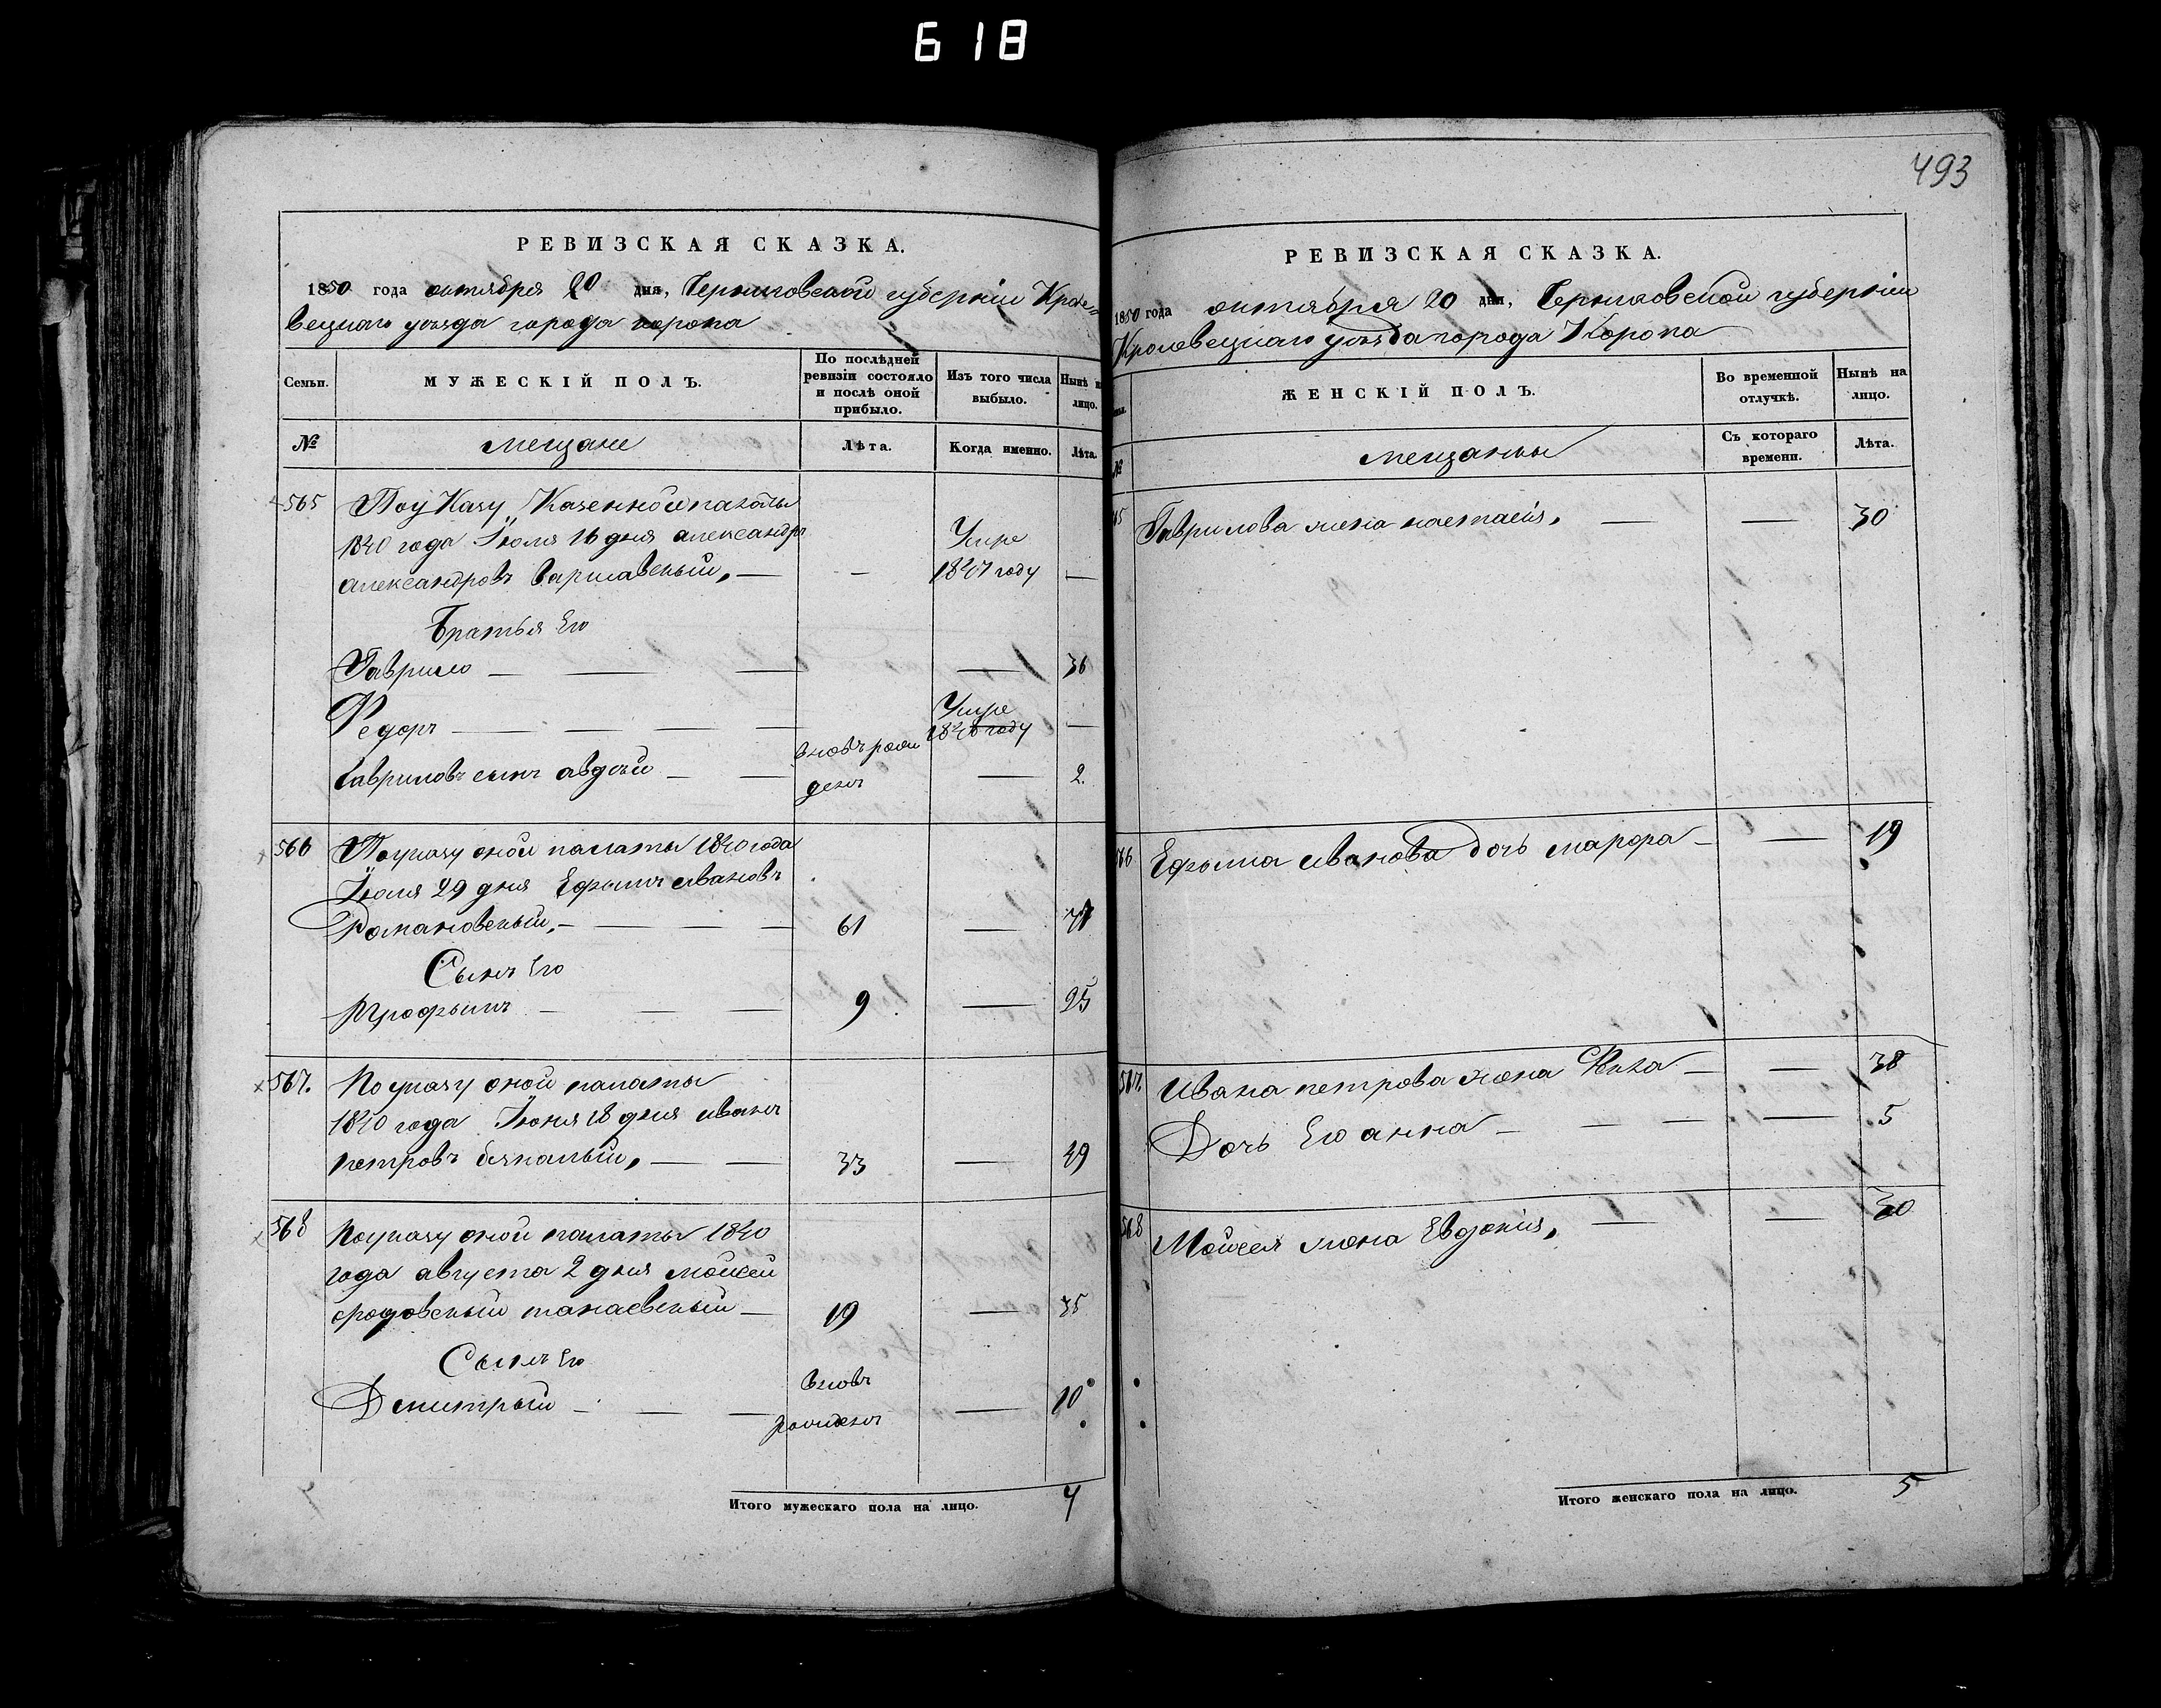 618
493
РЕВИЗСКАЯ СКАЗКА.
1850 года октября 20 дня, Черниговской губернии Кроле-
вецкаго уезда города коропа
Семьи.
МУЖЕСКІЙ ПОЛЪ.
По послѣдней
ревизіи состояло
и послѣ оной
прибыло.
Изъ того числа
выбыло.
Нынѣ на
лицо.
№
мещане
Лѣта.
Когда именно.
Лѣта.
565
По указу Казенной палаты
1840 года Іюля 16 дня александръ
александровъ варшавскый, —
—
Умре
1847 году
—
Братья Его
Гаврило — — —
—
36
Федоръ — — — —
Умре
1848 году
—
Гавриловъ сынъ авдѣй — —
вновь рож
денъ
—
2.
566
По указу оной палаты 1840 года
Іюля 29 дня Ефымъ ивановъ
Романовскый, — — — —
61
—
77
Сынъ Его
Трофымъ — — —
9
—
25
567.
По указу оной палаты
1840 года Іюня 18 дня иванъ
петровъ — —
33
—
49
568
По указу оной палаты 1840
года августа 2 дня моисей
танаевскый —
19
—
35
Сынъ Его
Дмитрый — — —
вновь
рожденъ
—
10
Итого мужескаго пола на лицо.
7
РЕВИЗСКАЯ СКАЗКА.
1850 года октября 20 дня, Черниговской губерніи
Кролевецкаго уезда города Коропа
№
ЖЕНСКІЙ ПОЛЪ.
Во временной
отлучкѣ.
Нынѣ на
лицо.
мещанки
Съ котораго
времени.
Лѣта.
Гаврилова жена настасія, —
—
30
Ефыма иванова дочь марфа —
—
19
567.
Ивана петрова жена —
—
38
Дочь Его анна — — —
—
5
568
Моисея жена Евдокія, —
—
30
Итого женскаго пола на лицо.
5